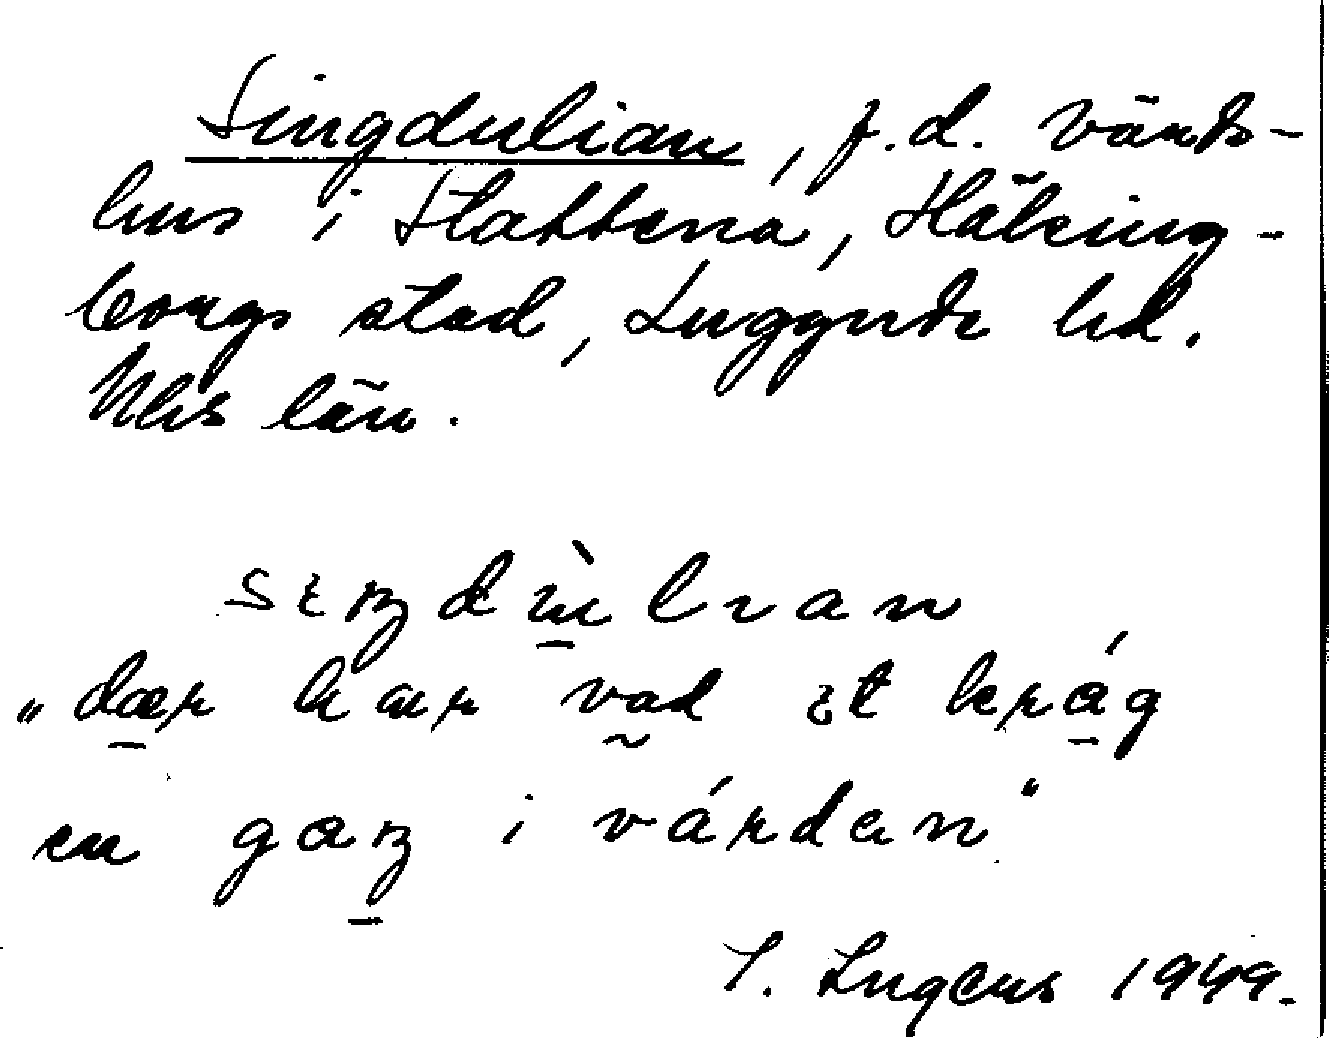 Singdulian, f.d. värds-
hus i Slottena, Hälsing-
borgs stad, Luggude hd.
Mhs län.
sɩŋdùlɩan
"dær har vad ɩt kråg
en gaŋ i várdan"
S. Ingers 1949.